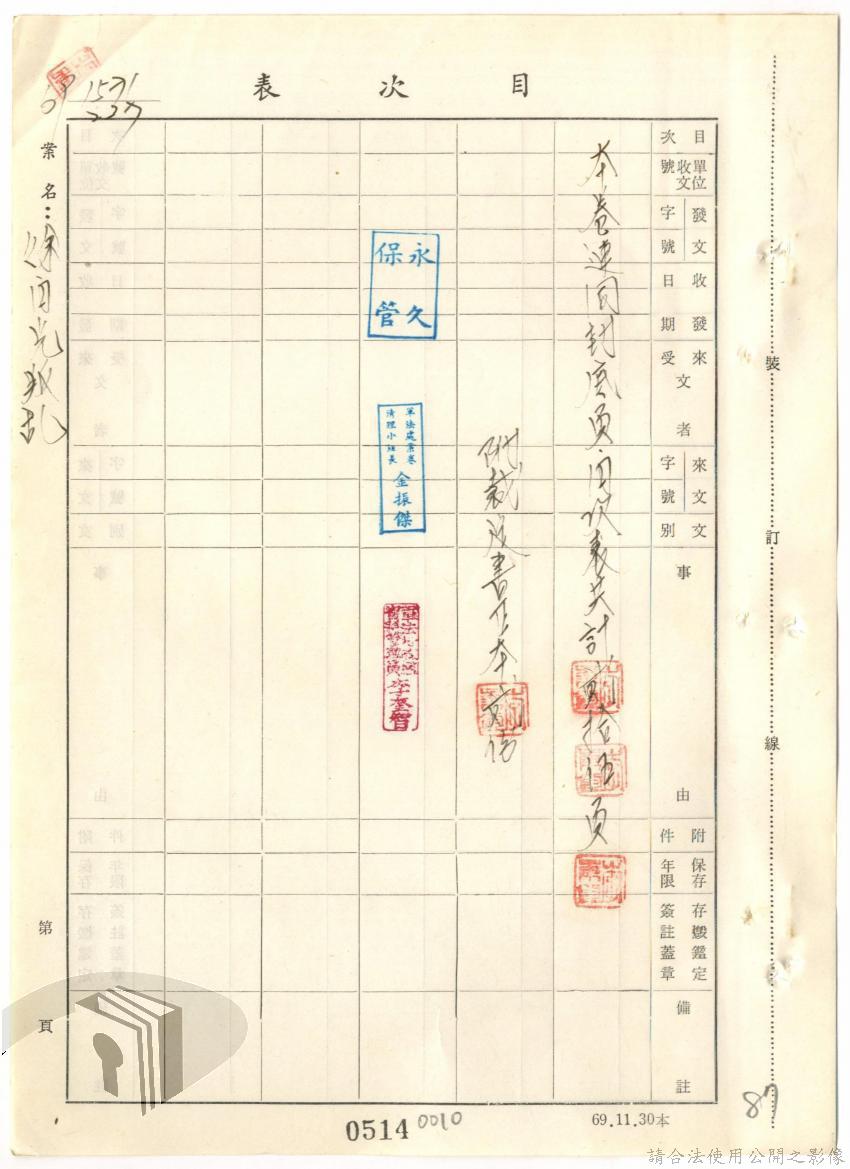 目次表
1571
目次
單位收文號
發文字號
收發日期
來文受者
來文字號
文別
事由
附件
保存年限
存燬鑑定簽註蓋章
備註
本卷連同封底頁目次表共計貳拾伍頁
附裁定書正本貳份
永久保管
軍法處案卷
清理小組長
金振傑
李奎智
案名：
叛乱
第 頁
裝訂線
0514
0010
69.11.30本
87
請合法使用公開之影像